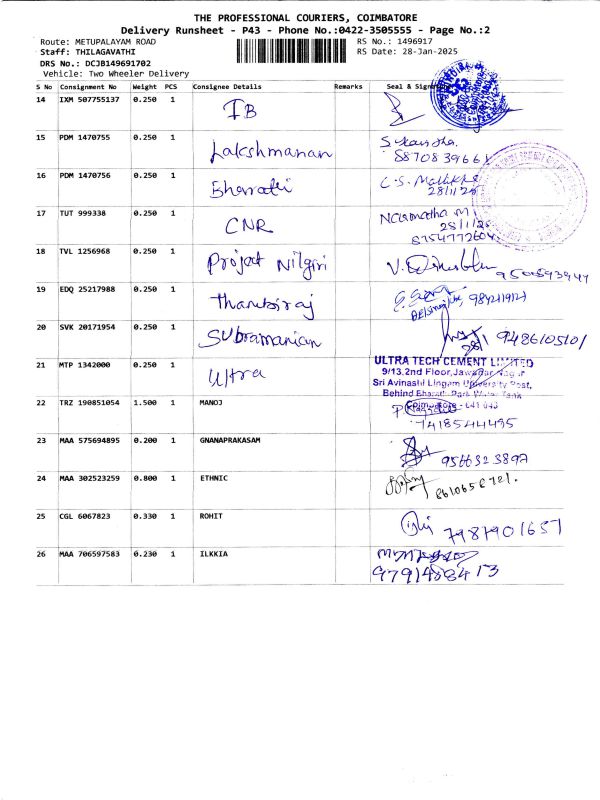 THE PROFESSIONAL COURIERS, COIMBATORE
Delivery Runsheet - P43 - Phone No.:0422-3505555 - Page No.:2
Route: METUPALAYAM ROAD RS No.: 1496917
Staff: THILAGAVATHI RS Date: 28-Jan-2025
DRS No.: DCJB149691702
Vehicle: Two Wheeler Delivery
S No Consignment No Weight PCS Consignee Details Remarks Seal &
14 IXM 507755137 0.250 1 IB
15 PDM 1470755 0.250 1 Lakshmanan
16 PDM 1470756 0.250 1 Bharathi
28/1/25
17 TUT 999338 0.250 1 CNR
28/1/25
8754772604
18 TVL 1256968 0.250 1 Project Nilgiri
19 EDQ 25217988 0.250 1 Thambiraj
20 SVK 20171954 0.250 1 Subramanian 9486105101
21 MTP 1342000 0.250 1 Ultra
ULTRA TECH CEMENT LIMITED
9/13.2nd Floor, Jawahar Nagar
Sri Avinashi Lingam University Post,
Behind Bharathi Park Water Tank
Coimbatore - 641 043
22 TRZ 190851054 1.500 1 MANOJ
7418544495
23 MAA 575694895 0.200 1 GNANAPRAKASAM
9566323897
24 MAA 302523259 0.800 1 ETHNIC
25 CGL 6067823 0.330 1 ROHIT
7981901657
26 MAA 706597583 0.230 1 ILKKIA
9791488413